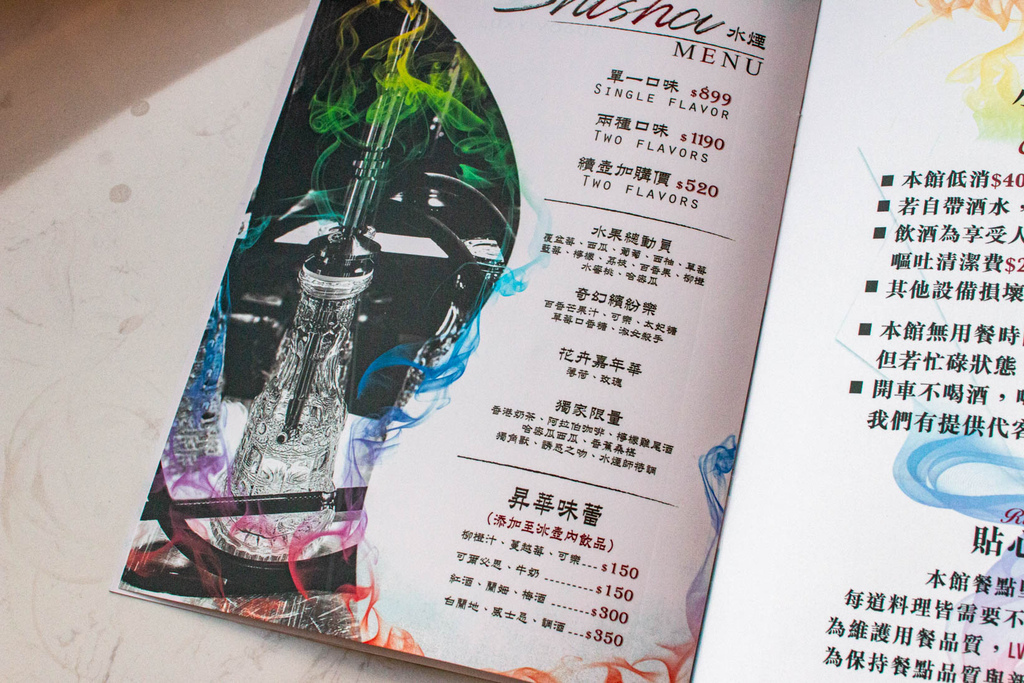 Shisha 水煙
MENU
單一口味 $899
SINGLE FLAVOR
兩種口味 $1190
TWO FLAVORS
續壺加購價 $520
TWO FLAVORS
水果總動員
覆盆莓、西瓜、葡萄、西柚、草莓
藍莓、檸檬、荔枝、百香果、柳橙
水蜜桃、哈密瓜
奇幻繽紛樂
百香芒果汁、可樂、太妃糖
草莓口香糖、淑女殺手
花卉嘉年華
薄荷、玫瑰
獨家限量
香港奶茶、阿拉伯咖啡、檸檬雞尾酒
哈密瓜西瓜、香蕉桑椹
獨角獸、誘惑之吻、水煙師特調
昇華味蕾
(添加至冰壺內飲品)
柳橙汁、蔓越莓、可樂---$150
可爾必思、牛奶---------$150
紅酒、蘭姆、梅酒------$300
白蘭地、威士忌、調酒---$350
■ 本館低消$40
■ 若自帶酒水，
■ 飲酒為享受人
嘔吐清潔費$2
■ 其他設備損壞
■ 本館無用餐時
但若忙碌狀態
■ 開車不喝酒，
我們有提供代客
貼心
本館餐點
每道料理皆需要不
為維護用餐品質，LW
為保持餐點品質與